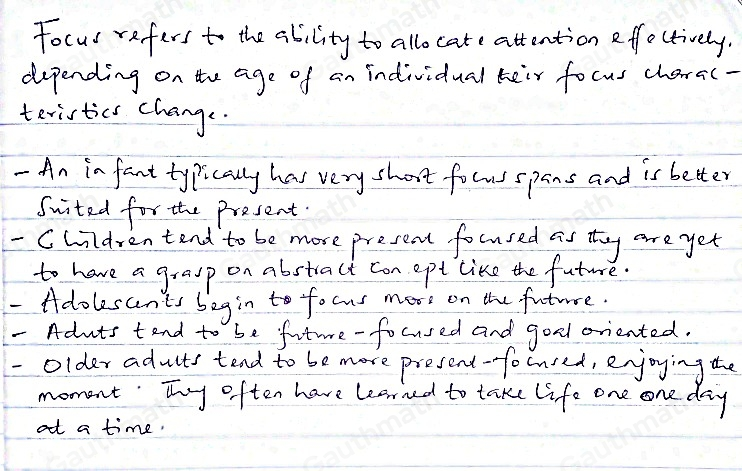 Focus refers to the ability to allocate attention effectively.
depending on the age of an individual their focus charac-
teristics change.
- An infant typically has very short focus spans and is better
suited for the present.
- Children tend to be more present focused as they are yet
to have a grasp on abstract concept like the future.
- Adolescents begin to focus more on the future.
- Aduts tend to be future-focused and goal oriented.
- Older adults tend to be more present-focused, enjoying the
moment. They often have learned to take life one one day
at a time.